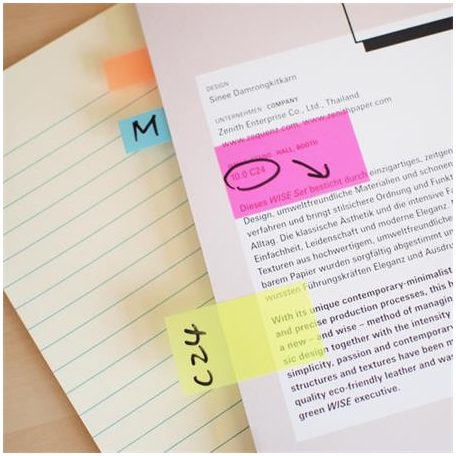 M
C24
DESIGN
Sinee Damrongkitkarn
UNTERNEHMEN COMPANY
Zenith Enterprise Co., Ltd., Thailand
www.sequenz.com, www.zenithpaper.com
HALL, BOOTH
10.0 C24
Dieses WISE Set besticht durch einzigartiges, zeitgen
Design, umweltfreundliche Materialien und schonen
verfahren und bringt stilsichere Ordnung und Funkt
Alltag. Die klassische Ästhetik und die intensive Fa
Einfachheit, Leidenschaft und moderne Eleganz.
Texturen aus hochwertigem, umweltfreundliche
barem Papier wurden sorgfältig abgestimmt u
wussten Führungskräften Eleganz und Ausdru
With its unique contemporary-minimalist
and precise production processes, this h
a new – and wise – method of managin
sic design together with the intensity
simplicity, passion and contemporary
structures and textures have been m
quality eco-friendly leather and was
green WISE executive.